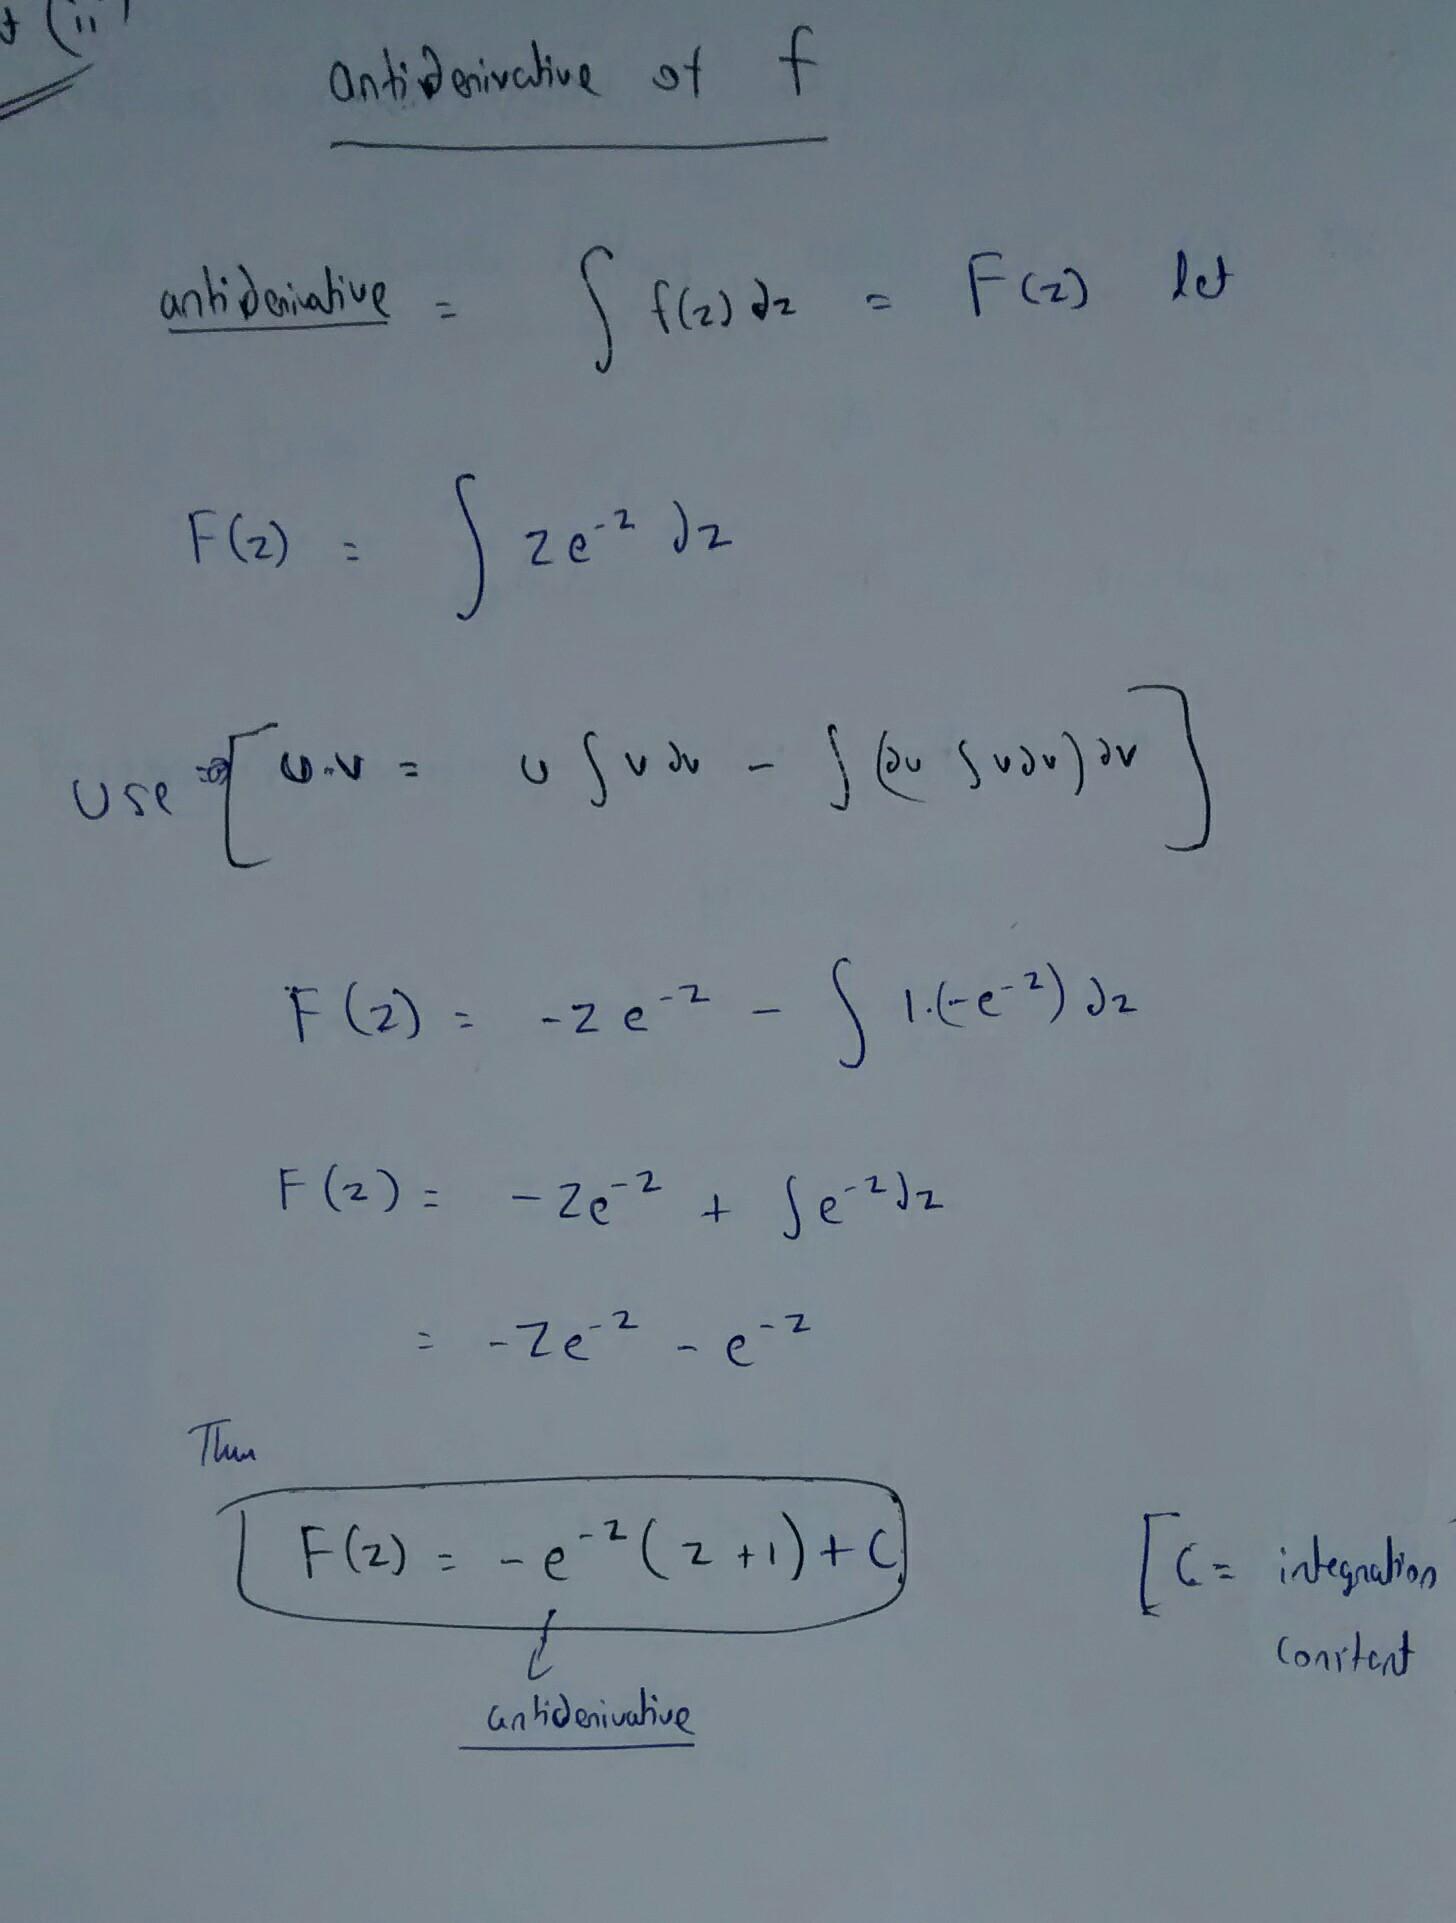 (ii)
antiderivative of f
antiderivative = ∫ f(z) dz = F(z) let
F(z) = ∫ ze^{-z} dz
Use [u.v = u ∫ v dv - ∫ (du ∫ v dv) dv]
F(z) = -ze^{-z} - ∫ 1.(-e^{-z}) dz
F(z) = -ze^{-z} + ∫e^{-z}dz
= -ze^{-z} - e^{-z}
Then
F(z) = -e^{-z}(z+1)+C [C = integration
constant
antiderivative